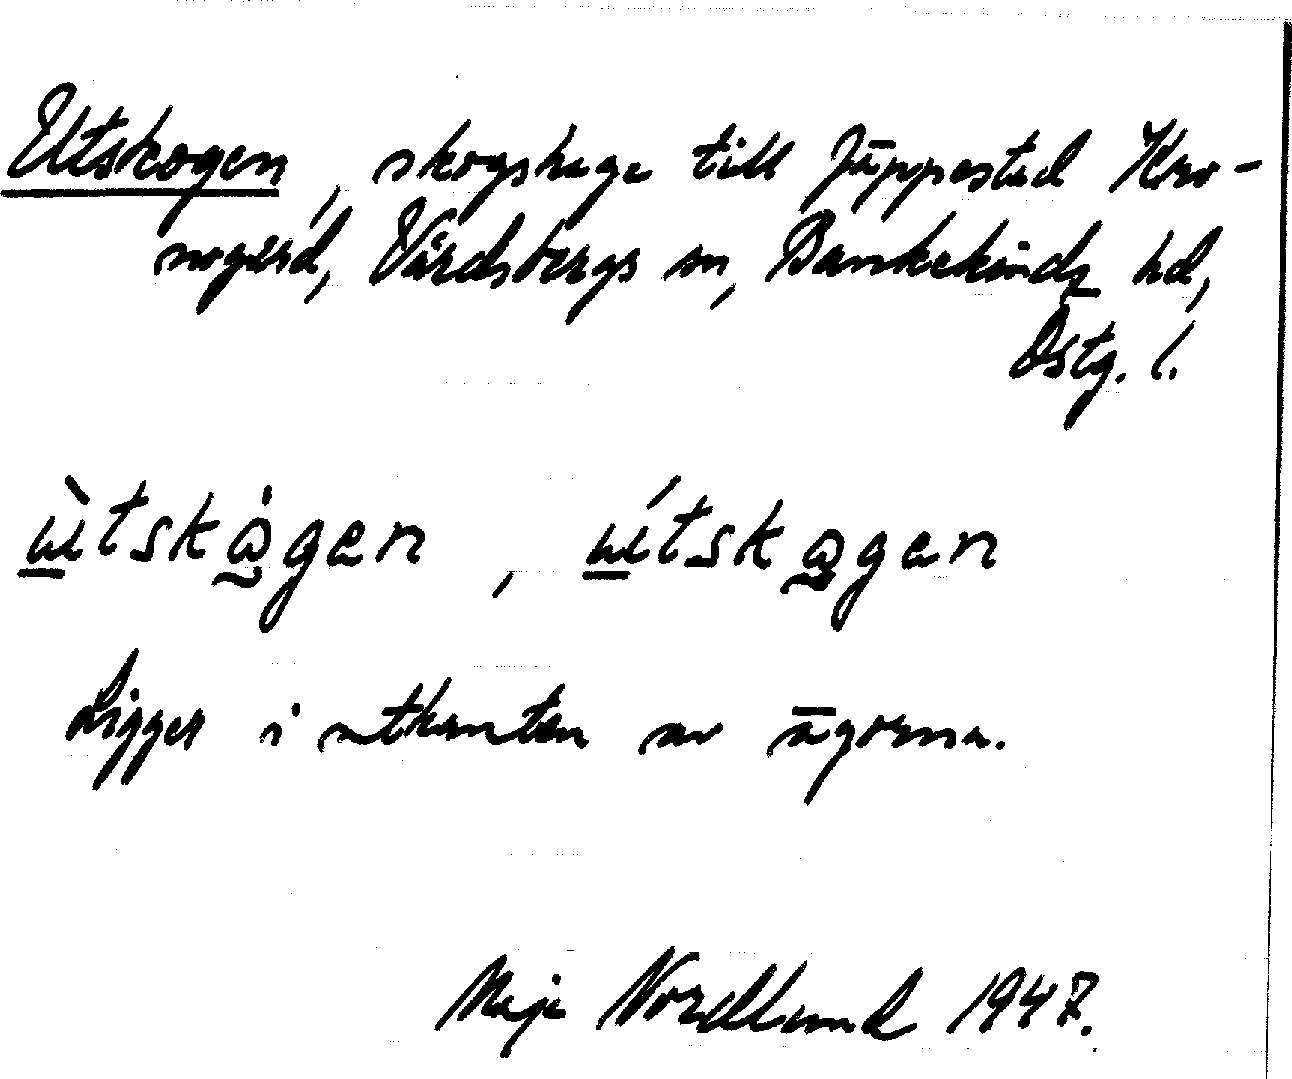 Utskogen, skogshage till Jäppestad Kro-
nogård, Vårdsbergs sn, Bankekinds hd,
Östg. l.
ùtskågen, útskagen
Ligger i utkanten av ägorna.
Maja Nordlund 1947.